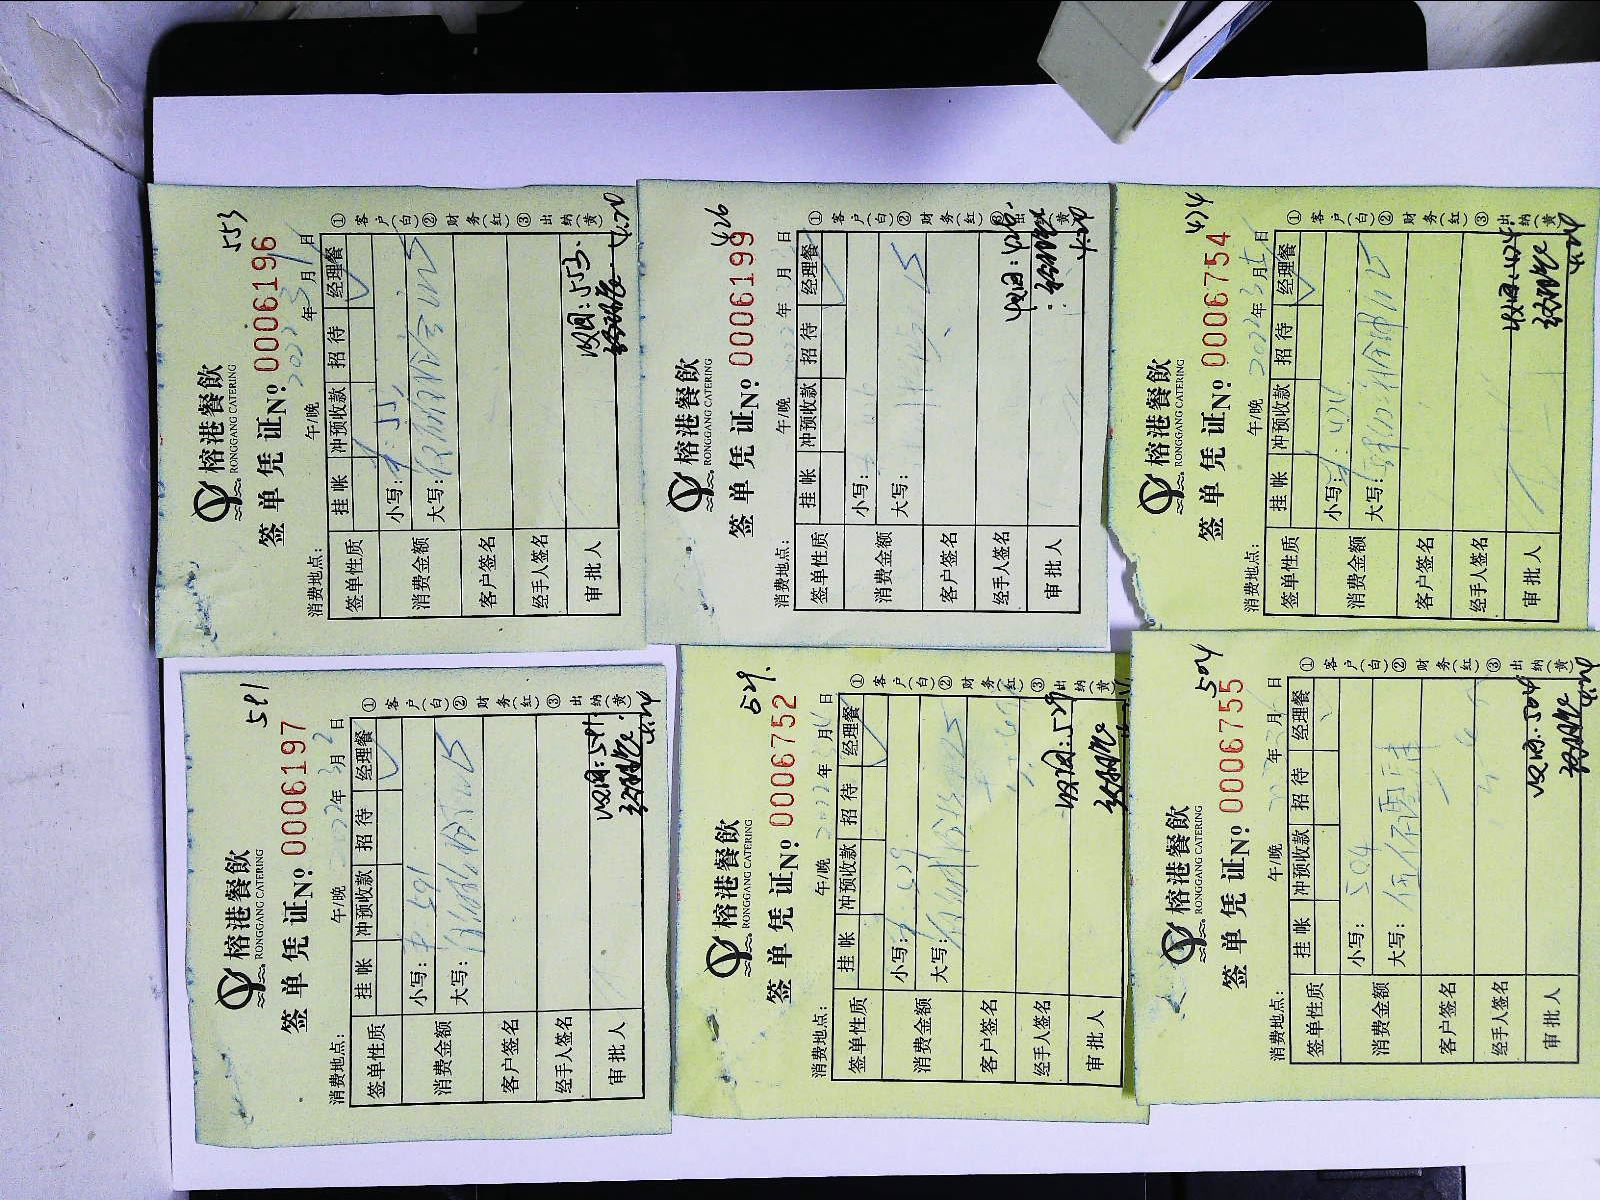 553
榕港餐飲
RONGGANG CATERING
签单凭证 No 0006196
消费地点: 午/晚 2022年3月1日
签单性质 挂帐 冲预收款 招待 经理餐
消费金额 小写:
大写:
客户签名
经手人签名
审批人
收回:553.
4.20
①客户(白)②财务(红)③出纳(黄)
426
榕港餐飲
RONGGANG CATERING
签单凭证 No 0006199
消费地点: 午/晚 年 月 日
签单性质 挂帐 冲预收款 招待 经理餐
消费金额 小写:
大写:
客户签名
经手人签名
审批人
收回:426.
4.20
①客户(白)②财务(红)③出纳(黄)
474
榕港餐飲
RONGGANG CATERING
签单凭证 No 0006754
消费地点: 午/晚 2022年3月5日
签单性质 挂帐 冲预收款 招待 经理餐
消费金额 小写:
大写:
客户签名
经手人签名
审批人
收回:474
4.20
①客户(白)②财务(红)③出纳(黄)
591
榕港餐飲
RONGGANG CATERING
签单凭证 No 0006197
消费地点: 午/晚 2022年3月2日
签单性质 挂帐 冲预收款 招待 经理餐
消费金额 小写:591
大写:
客户签名
经手人签名
审批人
收回:591
4.20
①客户(白)②财务(红)③出纳(黄)
529.
榕港餐飲
RONGGANG CATERING
签单凭证 No 0006752
消费地点: 午/晚 2022年 月 日
签单性质 挂帐 冲预收款 招待 经理餐
消费金额 小写:529
大写:
客户签名
经手人签名
审批人
收回:529
①客户(白)②财务(红)③出纳(黄)
504
榕港餐飲
RONGGANG CATERING
签单凭证 No 0006755
消费地点: 午/晚 年 月 日
签单性质 挂帐 冲预收款 招待 经理餐
消费金额 小写:504
大写:伍佰零肆
客户签名
经手人签名
审批人
收回:504
4.20
①客户(白)②财务(红)③出纳(黄)